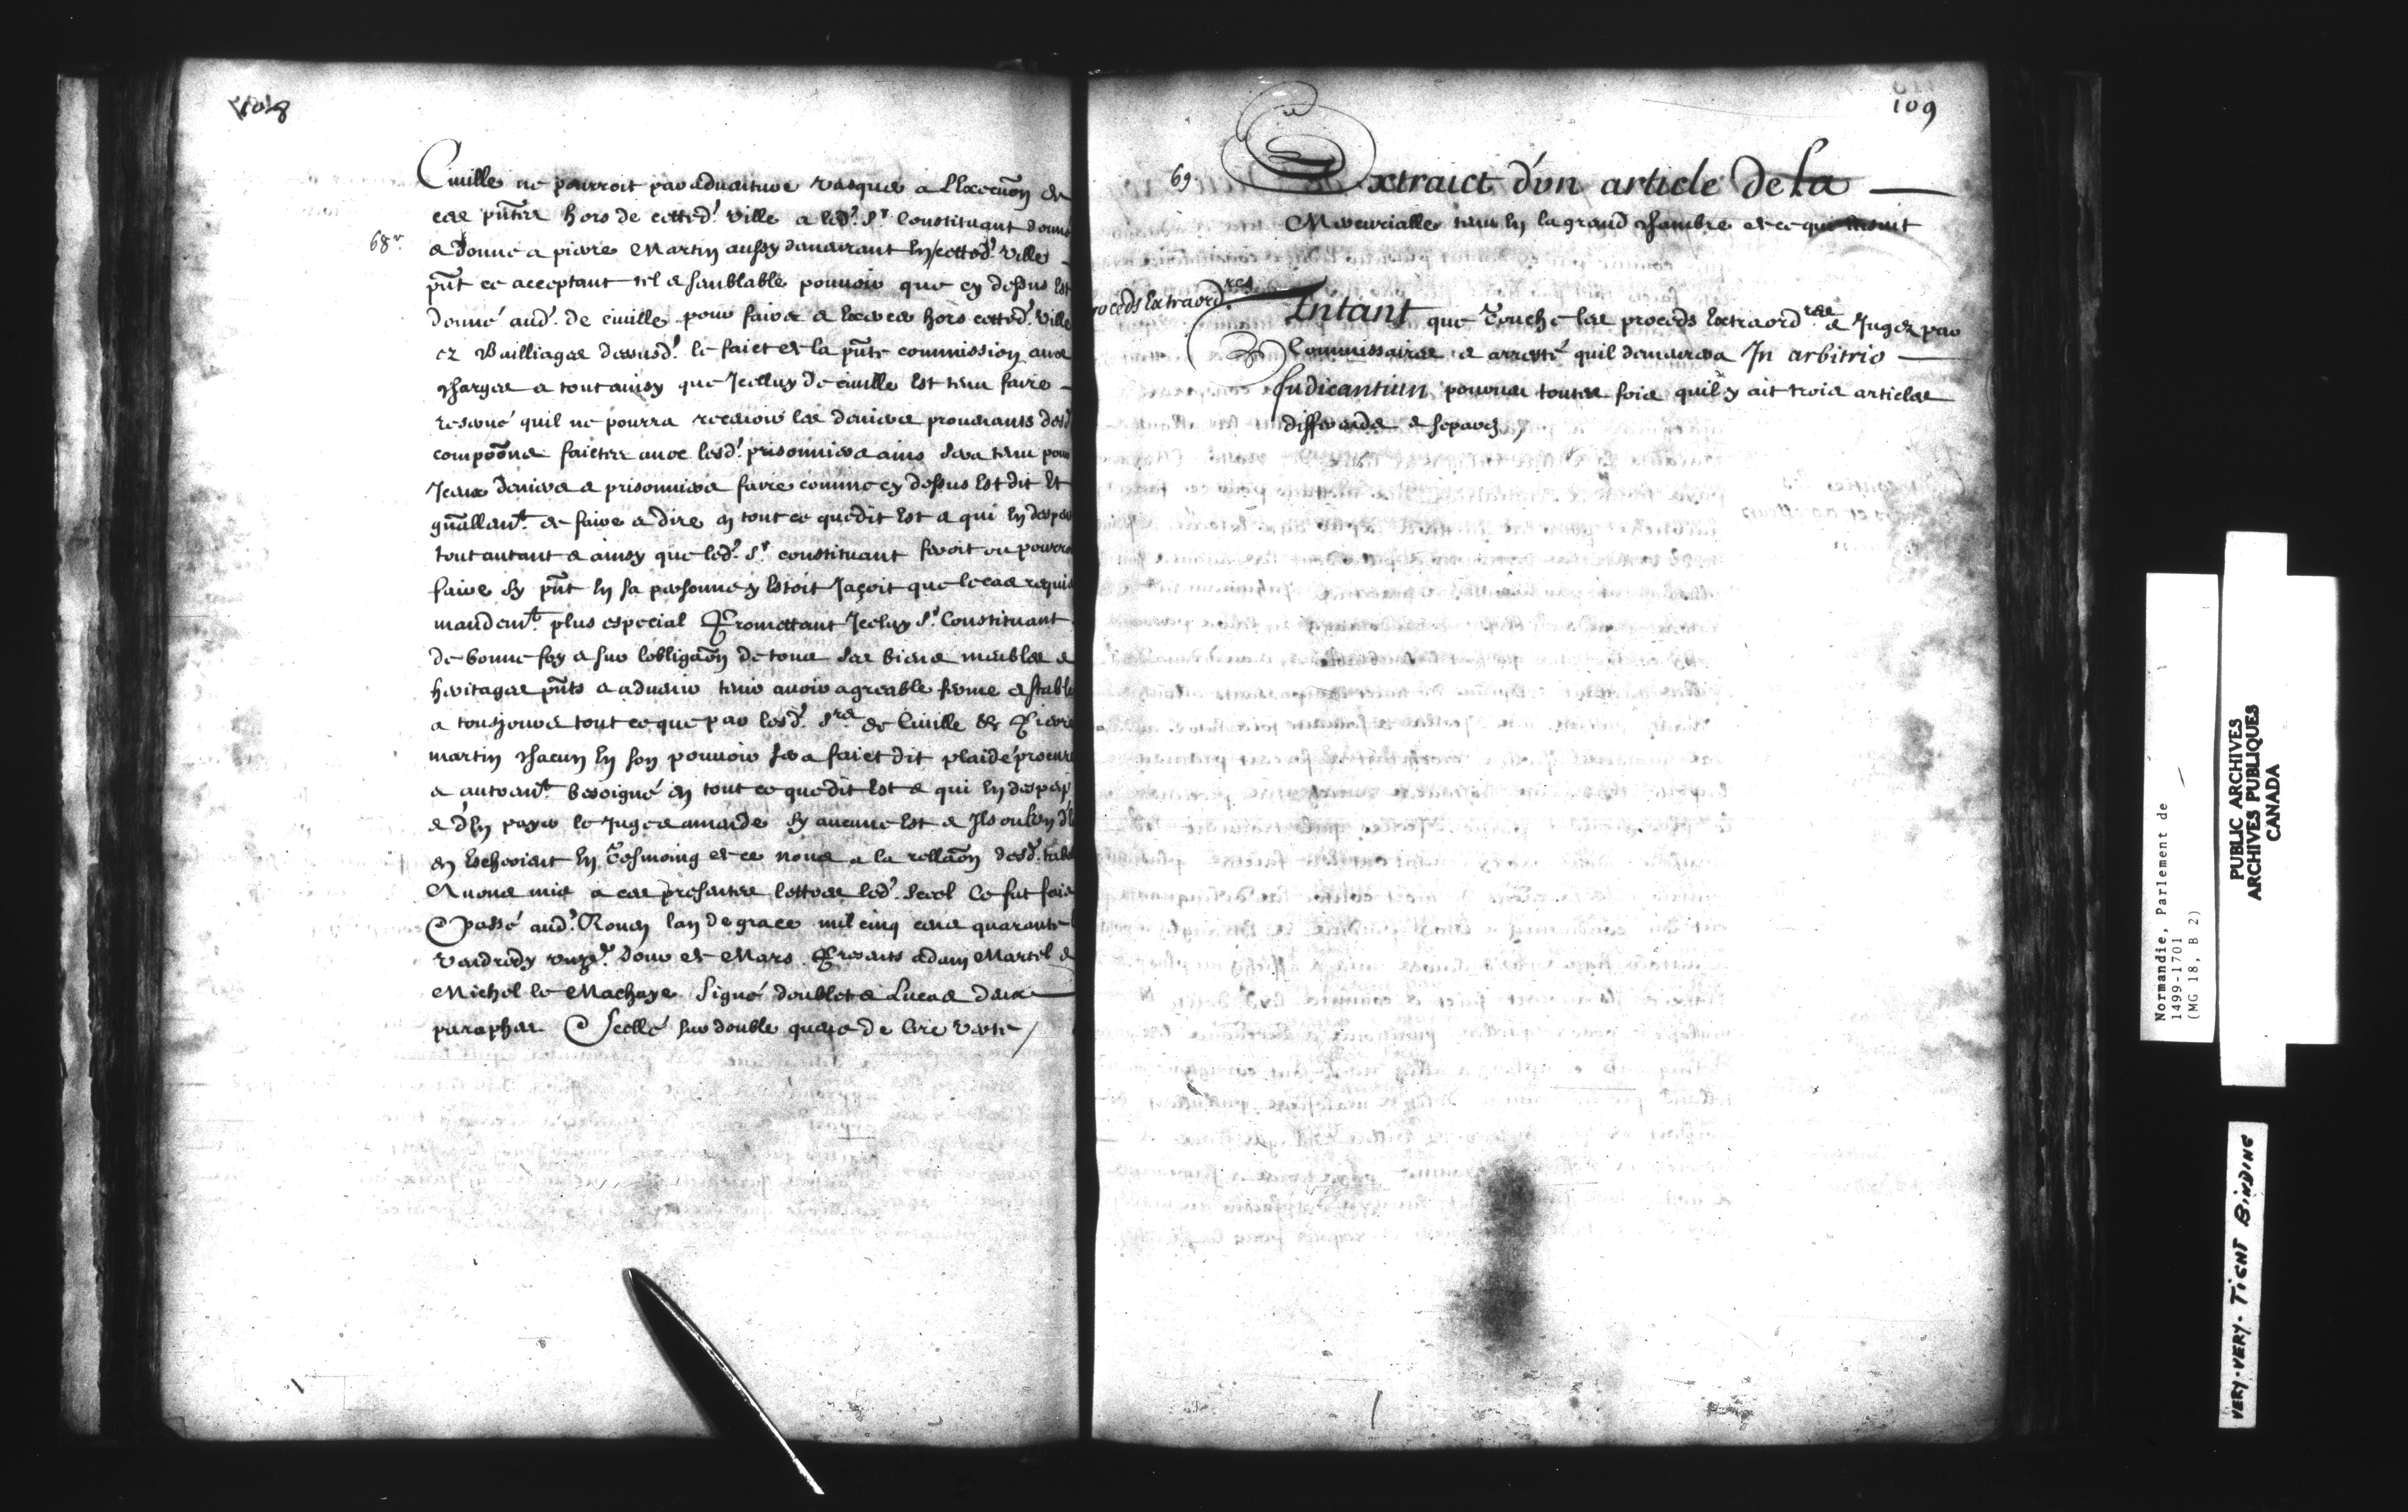 108
Ciuille ne pourroit par aduanture vacquer a Lexecuōn de
ces pñtes hors de cetted.ᵉ ville a led.ᵗ Sʳ Constituant donné
68ᵛ
& donne a pierre Martin aussy demeurant en cetted.ᵉ ville
pñt ce acceptant tel & semblable pouuoir que cy dessus est
donné aud.ᵗ de ciuille pour faire & exercer hors cetted.ᵉ ville
ez Bailliages dessusd.ᵗ le faict de la pñte commission aux
charges & tout ainsy que Jcelluy de ciuille Est tenu faire
reserué quil ne pourra receuoir les deniers prouenants desd
compoōns faictes auec lesd.ᵗ prisonniers ains sera tenu pour
Jceux deniers & prisonniers faire comme cy dessus Est dit Et
gñallemᵗ de faire & dire en tout ce que dit Est & qui en
tout autant & ainsy que led.ᵗ Sʳ constituant feroit ou pourroit
faire sy pñt en sa personne y Estoit Jaçoit que le cas requis
mandemᵗ plus especial Promettant Jceluy Sʳ Constituant
de bonne foy & sur lobligaōn de tous ses biens meubles &
heritages pñts & aduenir tenir auoir agreable ferme & stable
a tousjours tout ce que par lesd.ᵗ Sʳˢ de Ciuille & Pierre
martin chacun en son pouuoir sera faict dit plaidé procuré
& autremᵗ besoigné en tout ce que dit Est & qui en
& d'en payer le Jugé & amende sy aucune Est &
en Escheoient En Tesmoing de ce nous a la rellaōn desd.ᵗ
Auons mis a ces presentes lettres led.ᵗ Scel Ce fut faict
& passé aud.ᵗ Rouen lan de grace mil cinq cens quarante
vendredy unze.ᵉ Jour de Mars Presents adam Martel &
Michel le Machaye Signé doublet & Lucas deux
paraphes & scellé sur double queue de Cire verte /
109
69.
Extraict d'un article de la
Mercurialle tenu en la grand chambre de ce qui ensuit
rocéds Extraordʳᵉˢ
Entant que Touche les proceds Extraordʳᵉˢ & Jugez par
Commissaires a arresté quil demeurera In arbitrio
Judicantium pourueu toutes fois quil y ait trois articles
differends & separez /
Normandie, Parlement de
1499-1701
(MG 18, B 2)
PUBLIC ARCHIVES
ARCHIVES PUBLIQUES
CANADA
VERY-VERY-TIGHT BINDING